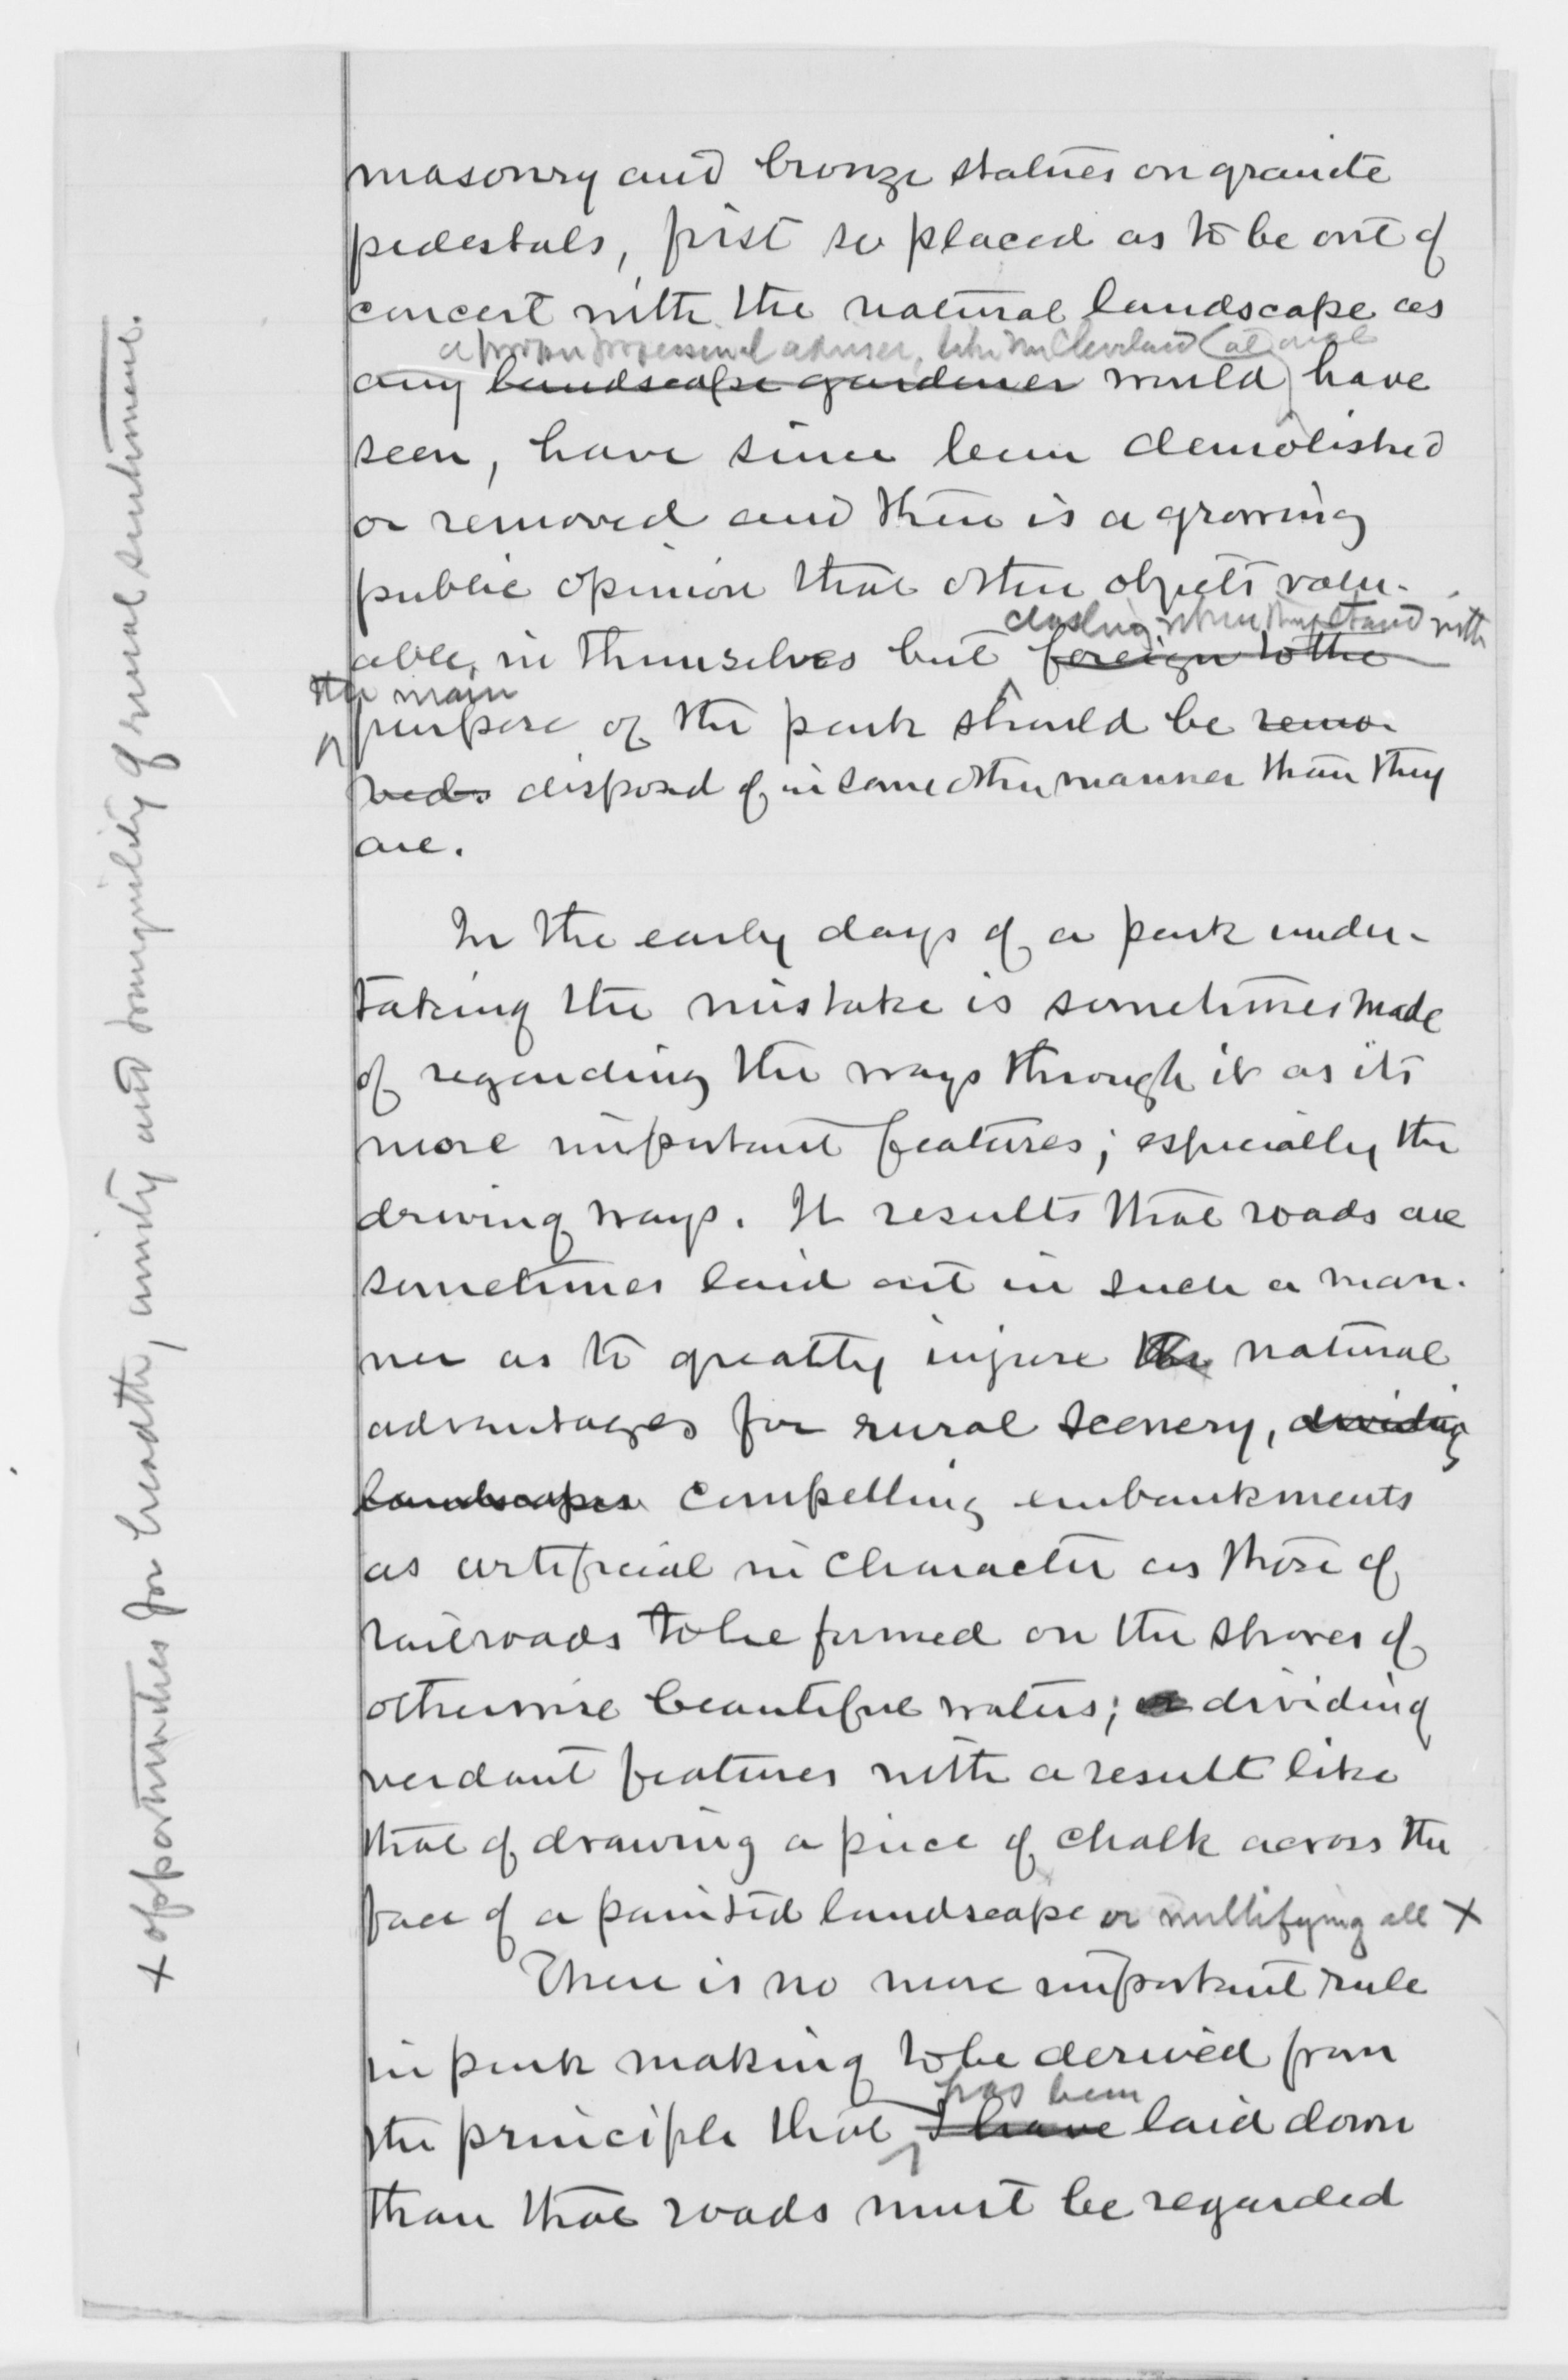 masonry and bronze statues on granite
pedestals, first so placed as to be out of
concert with the natural landscape as
a proper professional adviser, like Mr Cleveland (at once
any landscape gardener would) have
seen, have since been demolished
or removed and there is a growing
public opinion that other objects valu-
clashing when they stand with
able, in themselves but foreign to the
the main
purpose of the park should be remo-
ved. disposed of in some other manner than they
are.
In the early days of a park under-
taking the mistake is sometimes made
of regarding the ways through it as its
more important features; especially the
driving ways. It results that roads are
sometimes laid out in such a man-
ner as to greatly injure the natural
advantages for rural scenery, dividing
landscapes compelling embankments
as artificial in character as those of
railroads to be formed on the shores of
otherwise beautiful waters; or dividing
verdant features with a result like
that of drawing a piece of chalk across the
face of a painted landscape or nullifying all x
There is no more important rule
in park making to be derived from
has been
the principle that I have laid down
than that roads must be regarded
x opportunities for breadth, unity and tranquility of rural sentiment.